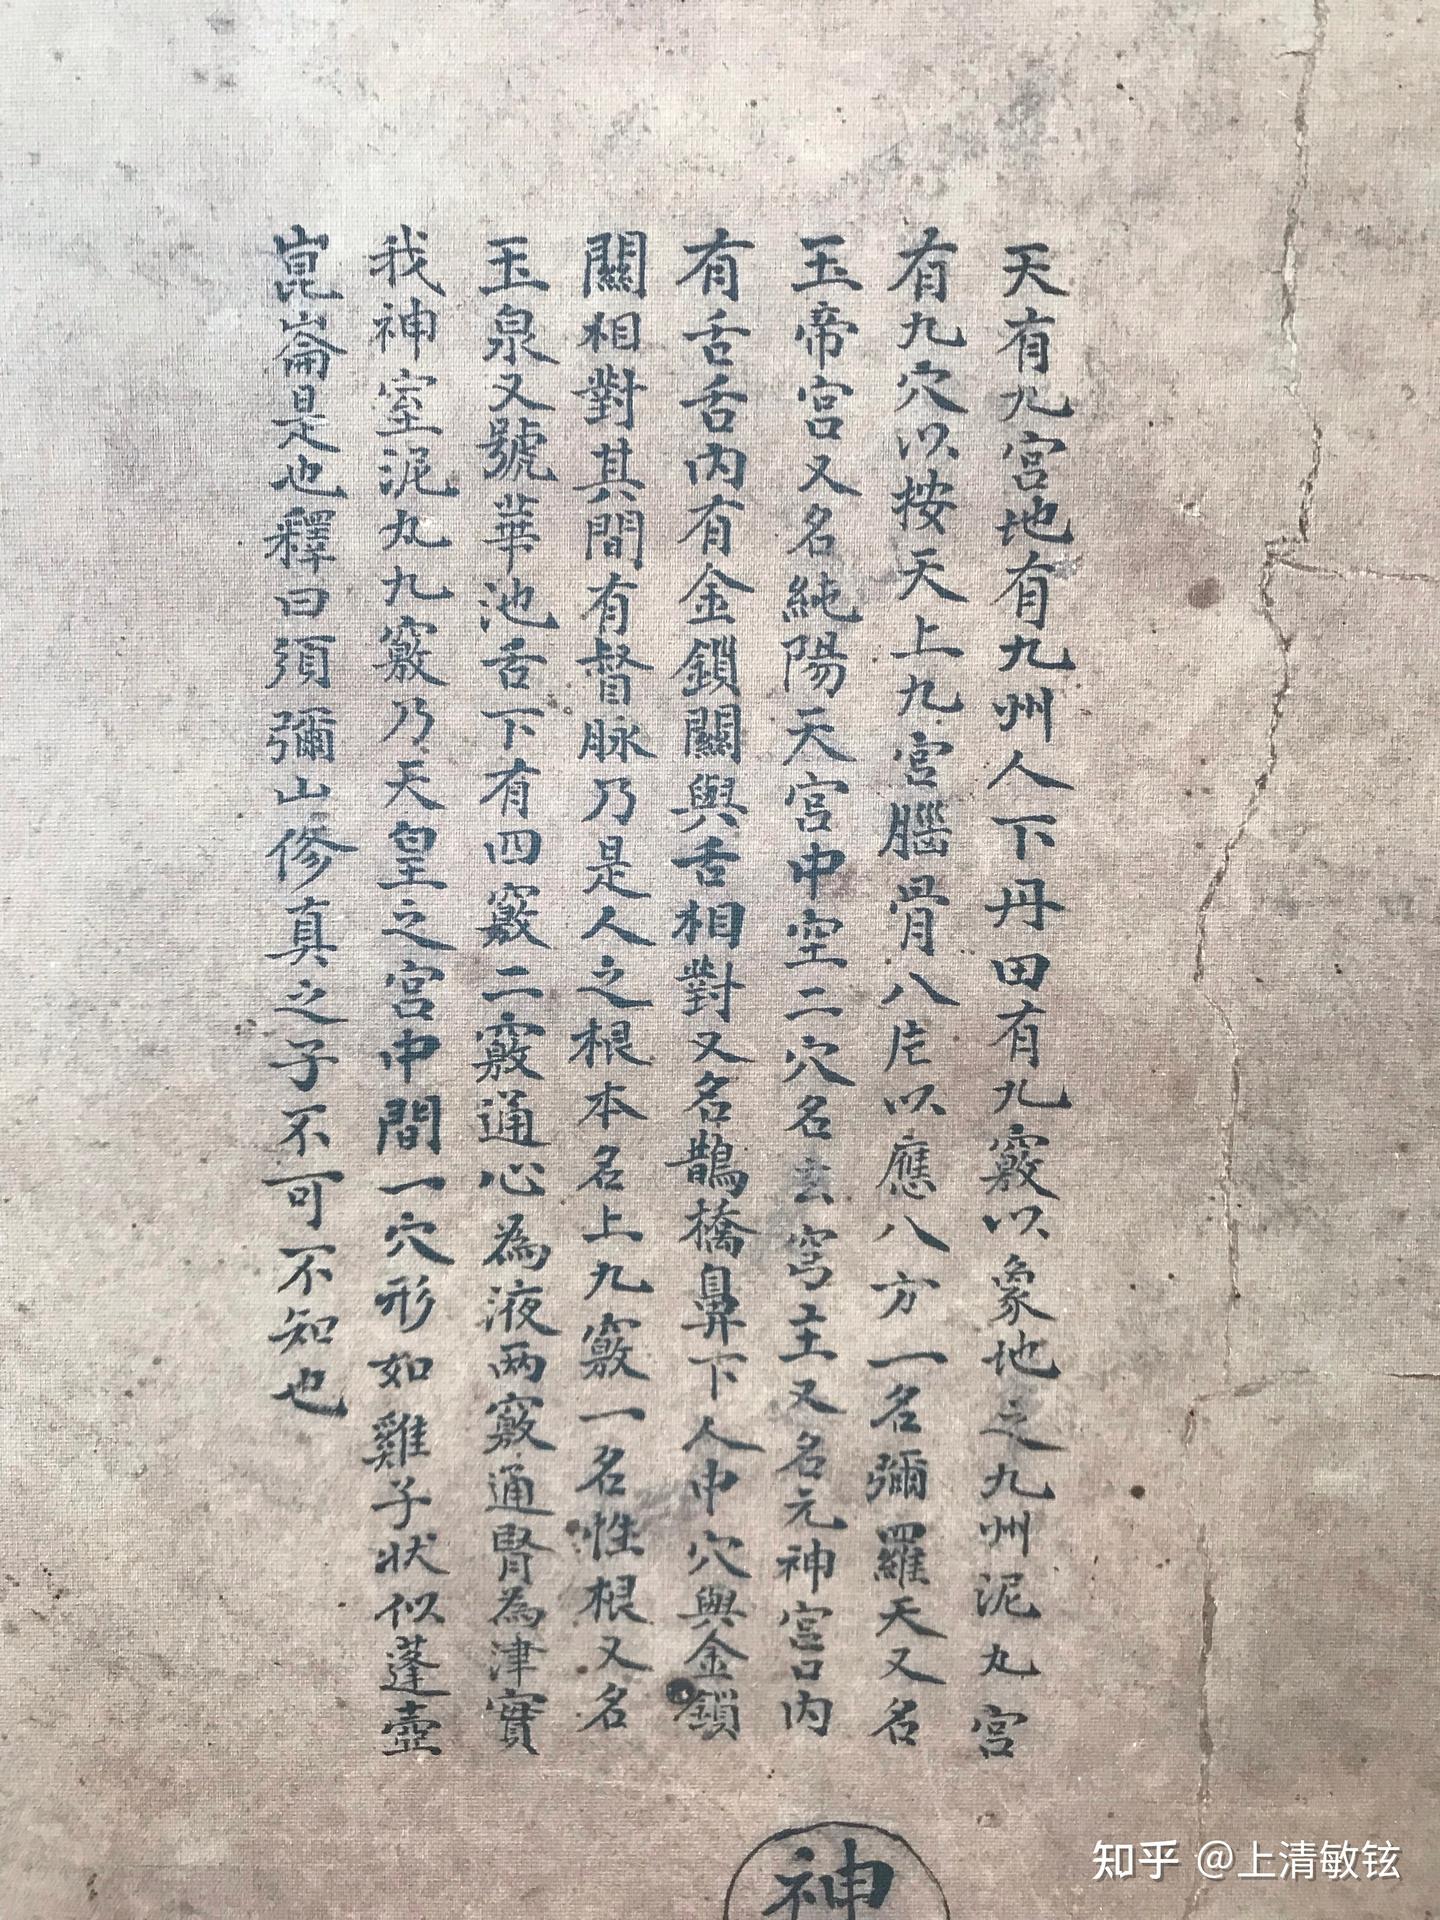 天有九宮地有九州人下丹田有九竅以象地之九州泥丸宮
有九穴以按天上九宮腦骨八片以應八方一名彌羅天又名
玉帝宮又名純陽天宮中空二穴名玄穹主又名元神宮口内
有舌舌内有金鎖關與舌相對又名鵲橋鼻下人中穴與金鎖
關相對其間有督脉乃是人之根本名上九竅一名性根又名
玉泉又號華池舌下有四竅二竅通心為液兩竅通腎為津實
我神室泥丸九竅乃天皇之宮中間一穴形如雞子状似蓬壺
崑崙是也釋曰須彌山修真之子不可不知也
神
知乎 @上清敏铉